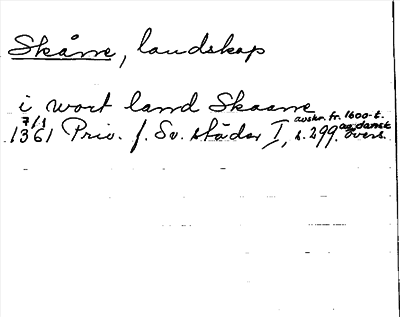 Skåne, landskap
i wort land Skaane
7/1 1361 Priv. f. Sv. städer I, s. 299. avskr. fr. 1600-t. av dansk övers.